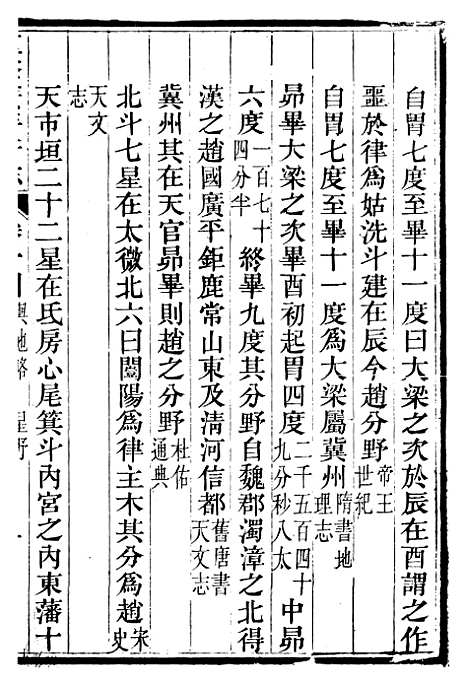 自胃七度至畢十一度曰大梁之次於辰在酉謂之作
噩於律爲姑洗斗建在辰今趙分野帝王世紀
自胃七度至畢十一度爲大梁屬冀州隋書地理志
昴畢大梁之次畢酉初起胃四度二千五百四十九分秒八太中昴
六度一百七十四分半終畢九度其分野自魏郡濁漳之北得
漢之趙國廣平鉅鹿常山東及清河信都舊唐書天文志
冀州其在天官昴畢則趙之分野杜佑通典
北斗七星在太微北六曰闓陽爲律主木其分爲趙宋史
天文志
天市垣二十二星在氐房心尾箕斗內宮之內東藩十
輿地略 星野